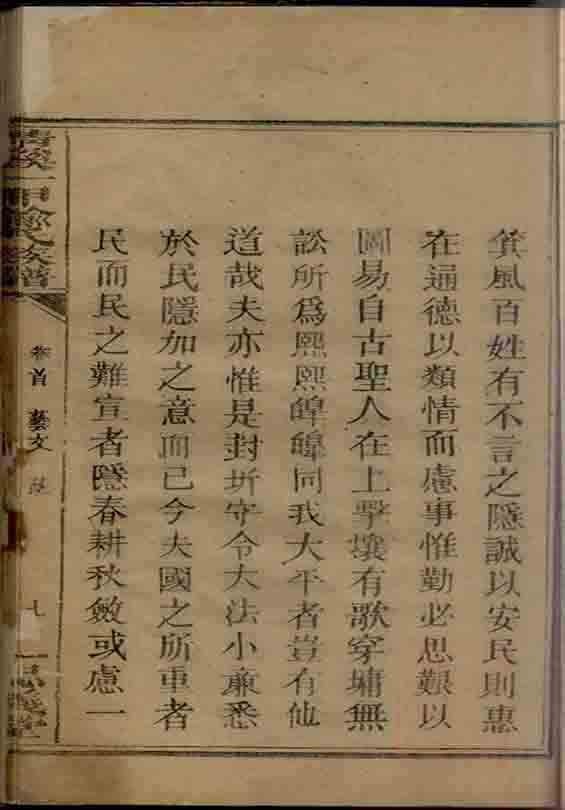 箕風百姓有不言之隱誠以安民則惠
在通德以類情而慮事惟勤必思艱以
圖易自古聖人在上擊壤有歌穿墉無
訟所爲熙熙皥皥同我太平者豈有他
道哉夫亦惟是封圻守令大法小廉悉
於民隱加之意而已今夫國之所重者
民而民之難宣者隱春耕秋斂或慮一
族譜
卷首 藝文